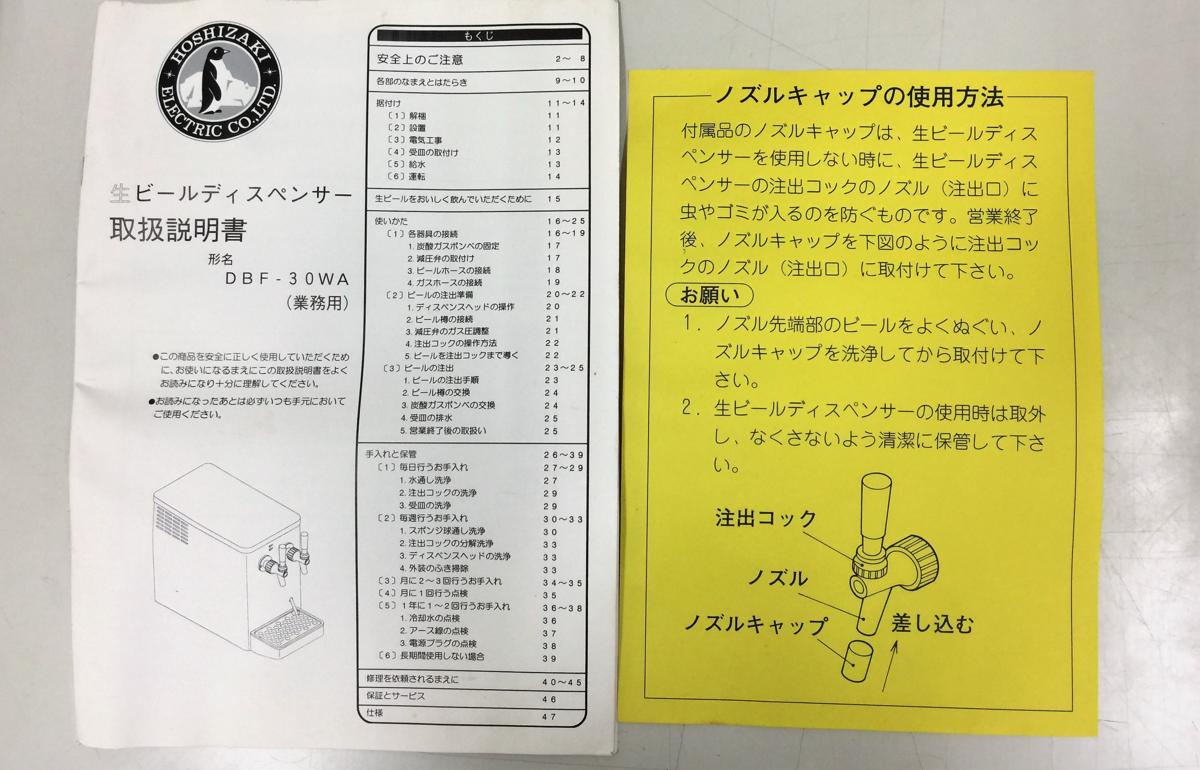 HOSHIZAKI
ELECTRIC CO.,LTD.
生ビールディスペンサー
取扱説明書
形名
DBF-30WA
(業務用)
●この商品を安全に正しく使用していただくため
に、お使いになるまえにこの取扱説明書をよく
お読みになり十分に理解してください。
●お読みになったあとは必ずいつも手元において
ご使用ください。
もくじ
安全上のご注意 2〜8
各部のなまえとはたらき 9〜10
据付け 11〜14
〔1〕解梱 11
〔2〕設置 11
〔3〕電気工事 12
〔4〕受皿の取付け 13
〔5〕給水 13
〔6〕運転 14
生ビールをおいしく飲んでいただくために 15
使いかた 16〜25
〔1〕各器具の接続 16〜19
1. 炭酸ガスボンベの固定 17
2. 減圧弁の取付け 17
3. ビールホースの接続 18
4. ガスホースの接続 19
〔2〕ビールの注出準備 20〜22
1. ディスペンスヘッドの操作 20
2. ビール樽の接続 21
3. 減圧弁のガス圧調整 21
4. 注出コックの操作方法 22
5. ビールを注出コックまで導く 22
〔3〕ビールの注出 23〜25
1. ビールの注出手順 23
2. ビール樽の交換 24
3. 炭酸ガスボンベの交換 24
4. 受皿の排水 25
5. 営業終了後の取扱い 25
手入れと保管 26〜39
〔1〕毎日行うお手入れ 27〜29
1. 水通し洗浄 27
2. 注出コックの洗浄 29
3. 受皿の洗浄 29
〔2〕毎週行うお手入れ 30〜33
1. スポンジ球通し洗浄 30
2. 注出コックの分解洗浄 33
3. ディスペンスヘッドの洗浄 33
4. 外装のふき掃除 33
〔3〕月に2〜3回行うお手入れ 34〜35
〔4〕月に1回行う点検 35
〔5〕1年に1〜2回行うお手入れ 36〜38
1. 冷却水の点検 36
2. アース線の点検 37
3. 電源プラグの点検 38
〔6〕長期間使用しない場合 39
修理を依頼されるまえに 40〜45
保証とサービス 46
仕様 47
ノズルキャップの使用方法
付属品のノズルキャップは、生ビールディス
ペンサーを使用しない時に、生ビールディス
ペンサーの注出コックのノズル(注出口)に
虫やゴミが入るのを防ぐものです。営業終了
後、ノズルキャップを下図のように注出コッ
クのノズル(注出口)に取付けて下さい。
お願い
1. ノズル先端部のビールをよくぬぐい、ノ
ズルキャップを洗浄してから取付けて下
さい。
2. 生ビールディスペンサーの使用時は取外
し、なくさないよう清潔に保管して下さ
い。
注出コック
ノズル
ノズルキャップ
差し込む